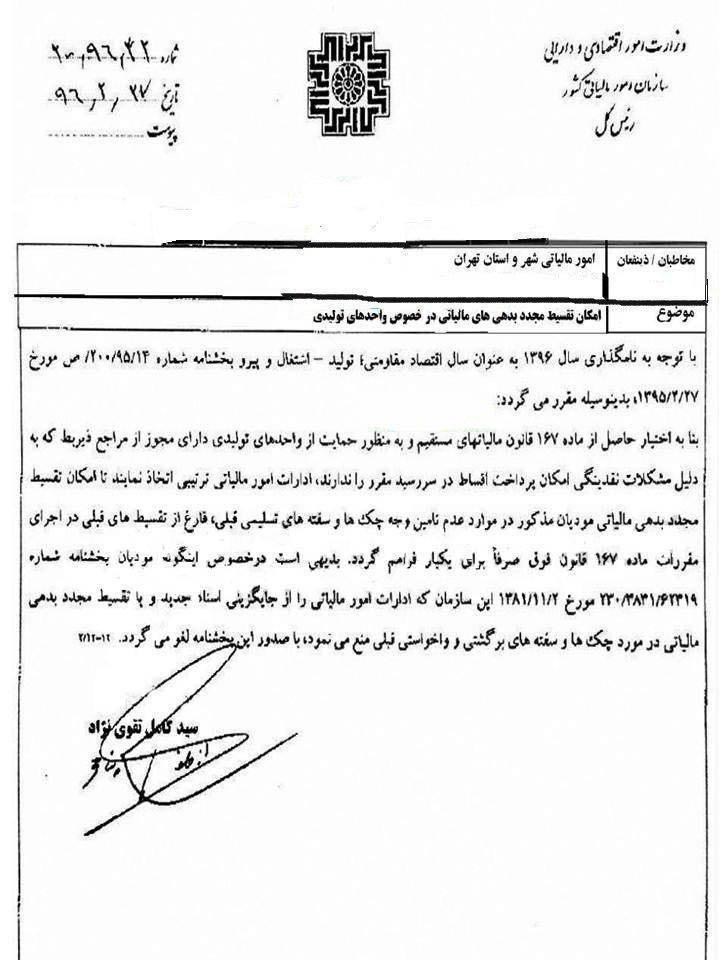 وزارت امور اقتصادی و دارایی
سازمان امور مالیاتی کشور
رئیس کل
شماره ۲۰۰٫۹۶٫۳۲
تاریخ ۹۶٫۲٫۲۷
پیوست
مخاطبان / ذینفعان
امور مالیاتی شهر و استان تهران
موضوع
امکان تقسیط مجدد بدهی های مالیاتی در خصوص واحدهای تولیدی
با توجه به نامگذاری سال ۱۳۹۶ به عنوان سال اقتصاد مقاومتی؛ تولید – اشتغال و پیرو بخشنامه شماره ۲۰۰/۹۵/۱۴/ ص مورخ
۱۳۹۵/۲/۲۷، بدینوسیله مقرر می گردد:
بنا به اختیار حاصل از ماده ۱۶۷ قانون مالیاتهای مستقیم و به منظور حمایت از واحدهای تولیدی دارای مجوز از مراجع ذیربط که به
دلیل مشکلات نقدینگی امکان پرداخت اقساط در سررسید مقرر را ندارند، ادارات امور مالیاتی ترتیبی اتخاذ نمایند تا امکان تقسیط
مجدد بدهی مالیاتی مودیان مذکور در موارد عدم تامین وجه چک ها و سفته های تسلیمی قبلی، فارغ از تقسیط های قبلی در اجرای
مقررات ماده ۱۶۷ قانون فوق صرفاً برای یکبار فراهم گردد. بدیهی است درخصوص اینگونه مودیان بخشنامه شماره
۲۳۰/۳۸۳۱/۶۲۳۱۹ مورخ ۱۳۸۱/۱۱/۲ این سازمان که ادارات امور مالیاتی را از جایگزینی اسناد جدید و یا تقسیط مجدد بدهی
مالیاتی در مورد چک ها و سفته های برگشتی و واخواستی قبلی منع می نمود، با صدور این بخشنامه لغو می گردد. ۲/۱۲-۱۲
سید کامل تقوی نژاد